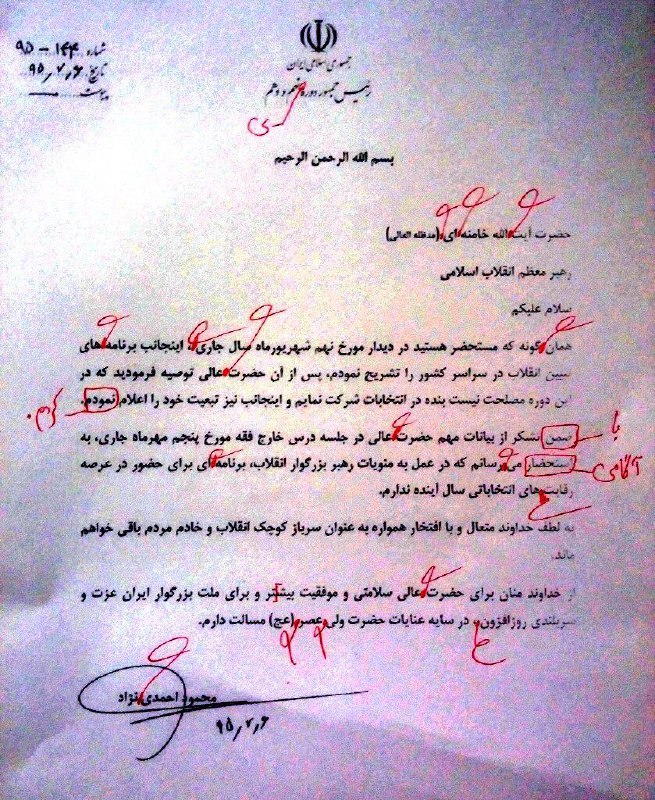 شماره ۱۴۴ - ۹۵
تاریخ ۹۵,۷,۶
پیوست
جمهوری اسلامی ایران
رئیس جمهور دوره نهم و دهم
ی
بسم الله الرحمن الرحیم
حضرت آیت الله خامنه ای (مدظله العالی)
رهبر معظم انقلاب اسلامی
سلام علیکم
همان گونه که مستحضر هستید در دیدار مورخ نهم شهریورماه سال جاری، اینجانب برنامه های
تبیین انقلاب در سراسر کشور را تشریح نمودم، پس از آن حضرت عالی توصیه فرمودید که در
این دوره مصلحت نیست بنده در انتخابات شرکت نمایم و اینجانب نیز تبعیت خود را اعلام نمودم.
کردم.
ضمن تشکر از بیانات مهم حضرت عالی در جلسه درس خارج فقه مورخ پنجم مهرماه جاری، به
با
استحضار می رسانم که در عمل به منویات رهبر بزرگوار انقلاب، برنامه ای برای حضور در عرصه
آگاهی
رقابت های انتخاباتی سال آینده ندارم.
به لطف خداوند متعال و با افتخار همواره به عنوان سرباز کوچک انقلاب و خادم مردم باقی خواهم
ماند.
از خداوند منان برای حضرت عالی سلامتی و موفقیت بیشتر و برای ملت بزرگوار ایران عزت و
سربلندی روزافزون، در سایه عنایات حضرت ولی عصر (عج) مسالت دارم.
محمود احمدی نژاد
۹۵,۷,۶